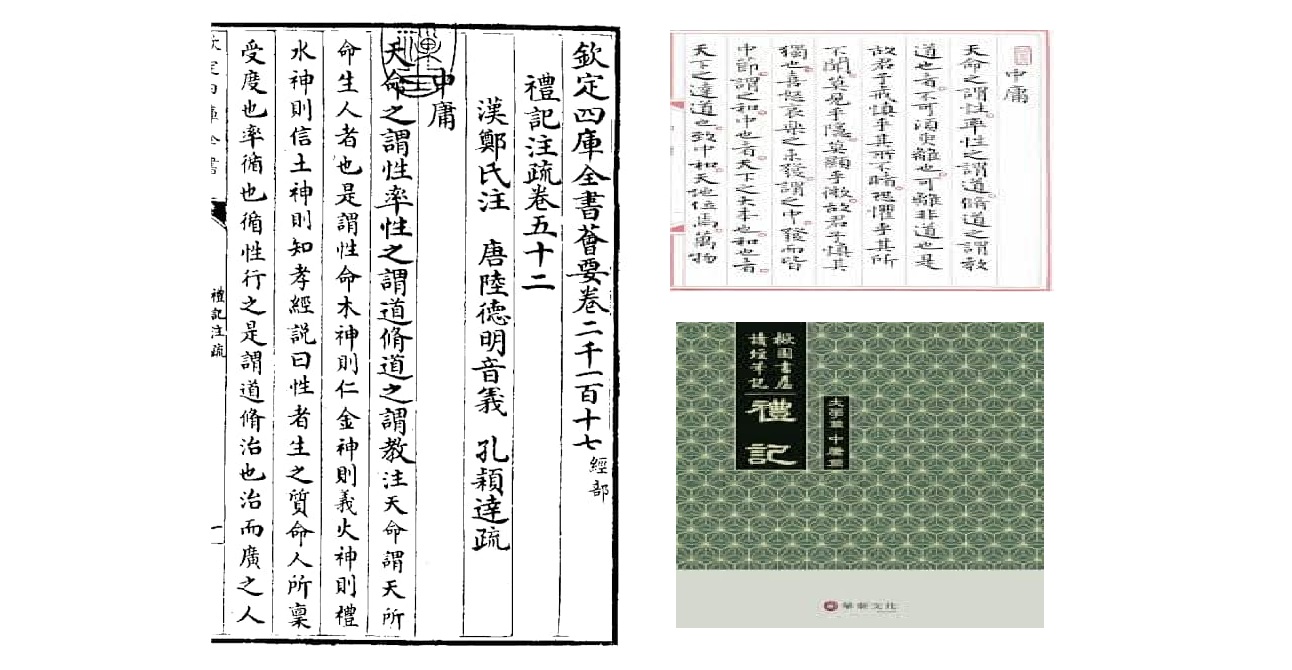 欽定四庫全書薈要卷二千一百十七 經部
禮記注疏卷五十二
漢鄭氏注 唐陸德明音義 孔穎達疏
中庸
天命之謂性率性之謂道脩道之謂教注天命謂天所
命生人者也是謂性命木神則仁金神則義火神則禮
水神則信土神則知孝經説曰性者生之質命人所稟
受度也率循也循性行之是謂道脩治也治而廣之人
欽定四庫全書
禮記注疏
一
中庸
天命之謂性率性之謂道脩道之謂教
道也者不可須臾離也可離非道也是
故君子戒慎乎其所不睹恐懼乎其所
不聞莫見乎隱莫顯乎微故君子慎其
獨也喜怒哀樂之未發謂之中發而皆
中節謂之和中也者天下之大本也和也者
天下之達道也致中和天地位焉萬物
禮記
大學章 中庸章